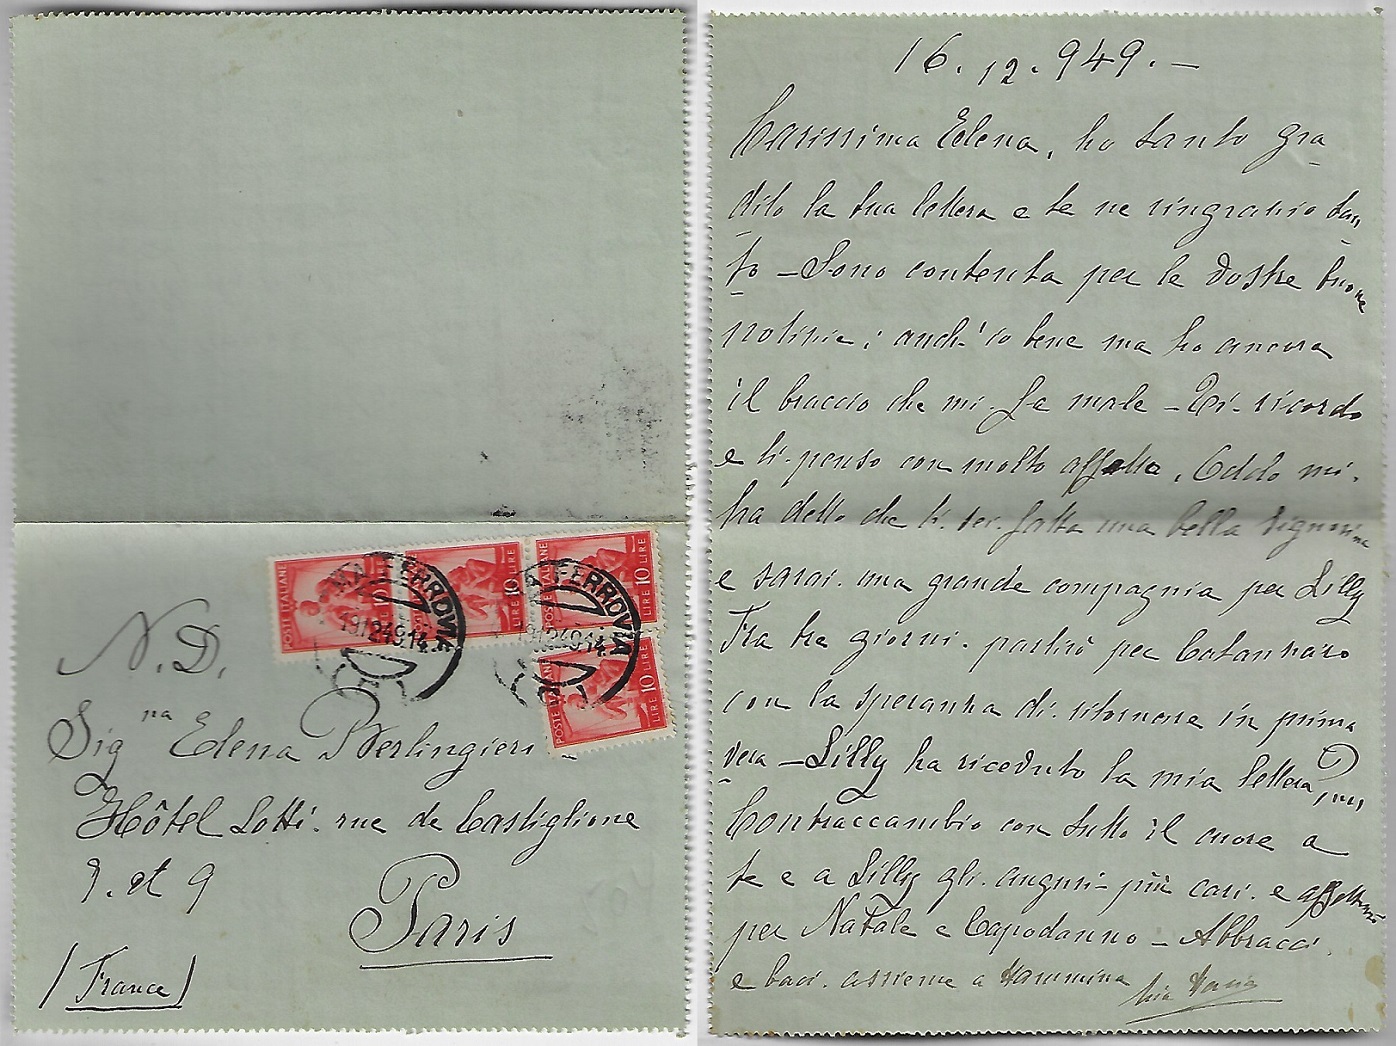 POSTE ITALIANE
10 LIRE
POSTE ITALIANE
10 LIRE
10 LIRE
LIRE 10
FERROVIA
19.12.49.14
FERROVIA
19.12.49.14
N. D.
Sig.na Elena Berlingieri
Hôtel Lotti. rue de Castiglione
7. et 9
Paris
(France)
16. 12. 949. —
Carissima Elena, ho tanto gra
dito la tua lettera e te ne ringrazio tan
to — Sono contenta per le vostre buone
notizie; anch'io bene ma ho ancora
il braccio che mi fa male — Ti ricordo
e ti penso con molto affetto. Oddo mi
ha detto che ti sei fatta una bella signorina
e sarai una grande compagnia per Lilly
Fra tre giorni partirò per Catanzaro
con la speranza di ritornare in prima
vera — Lilly ha ricevuto la mia lettera?
Contraccambio con tutto il cuore a
te e a Lilly gli auguri più cari e affettuosi
per Natale e Capodanno — Abbracci
e baci assieme a Mammina
zia Maria